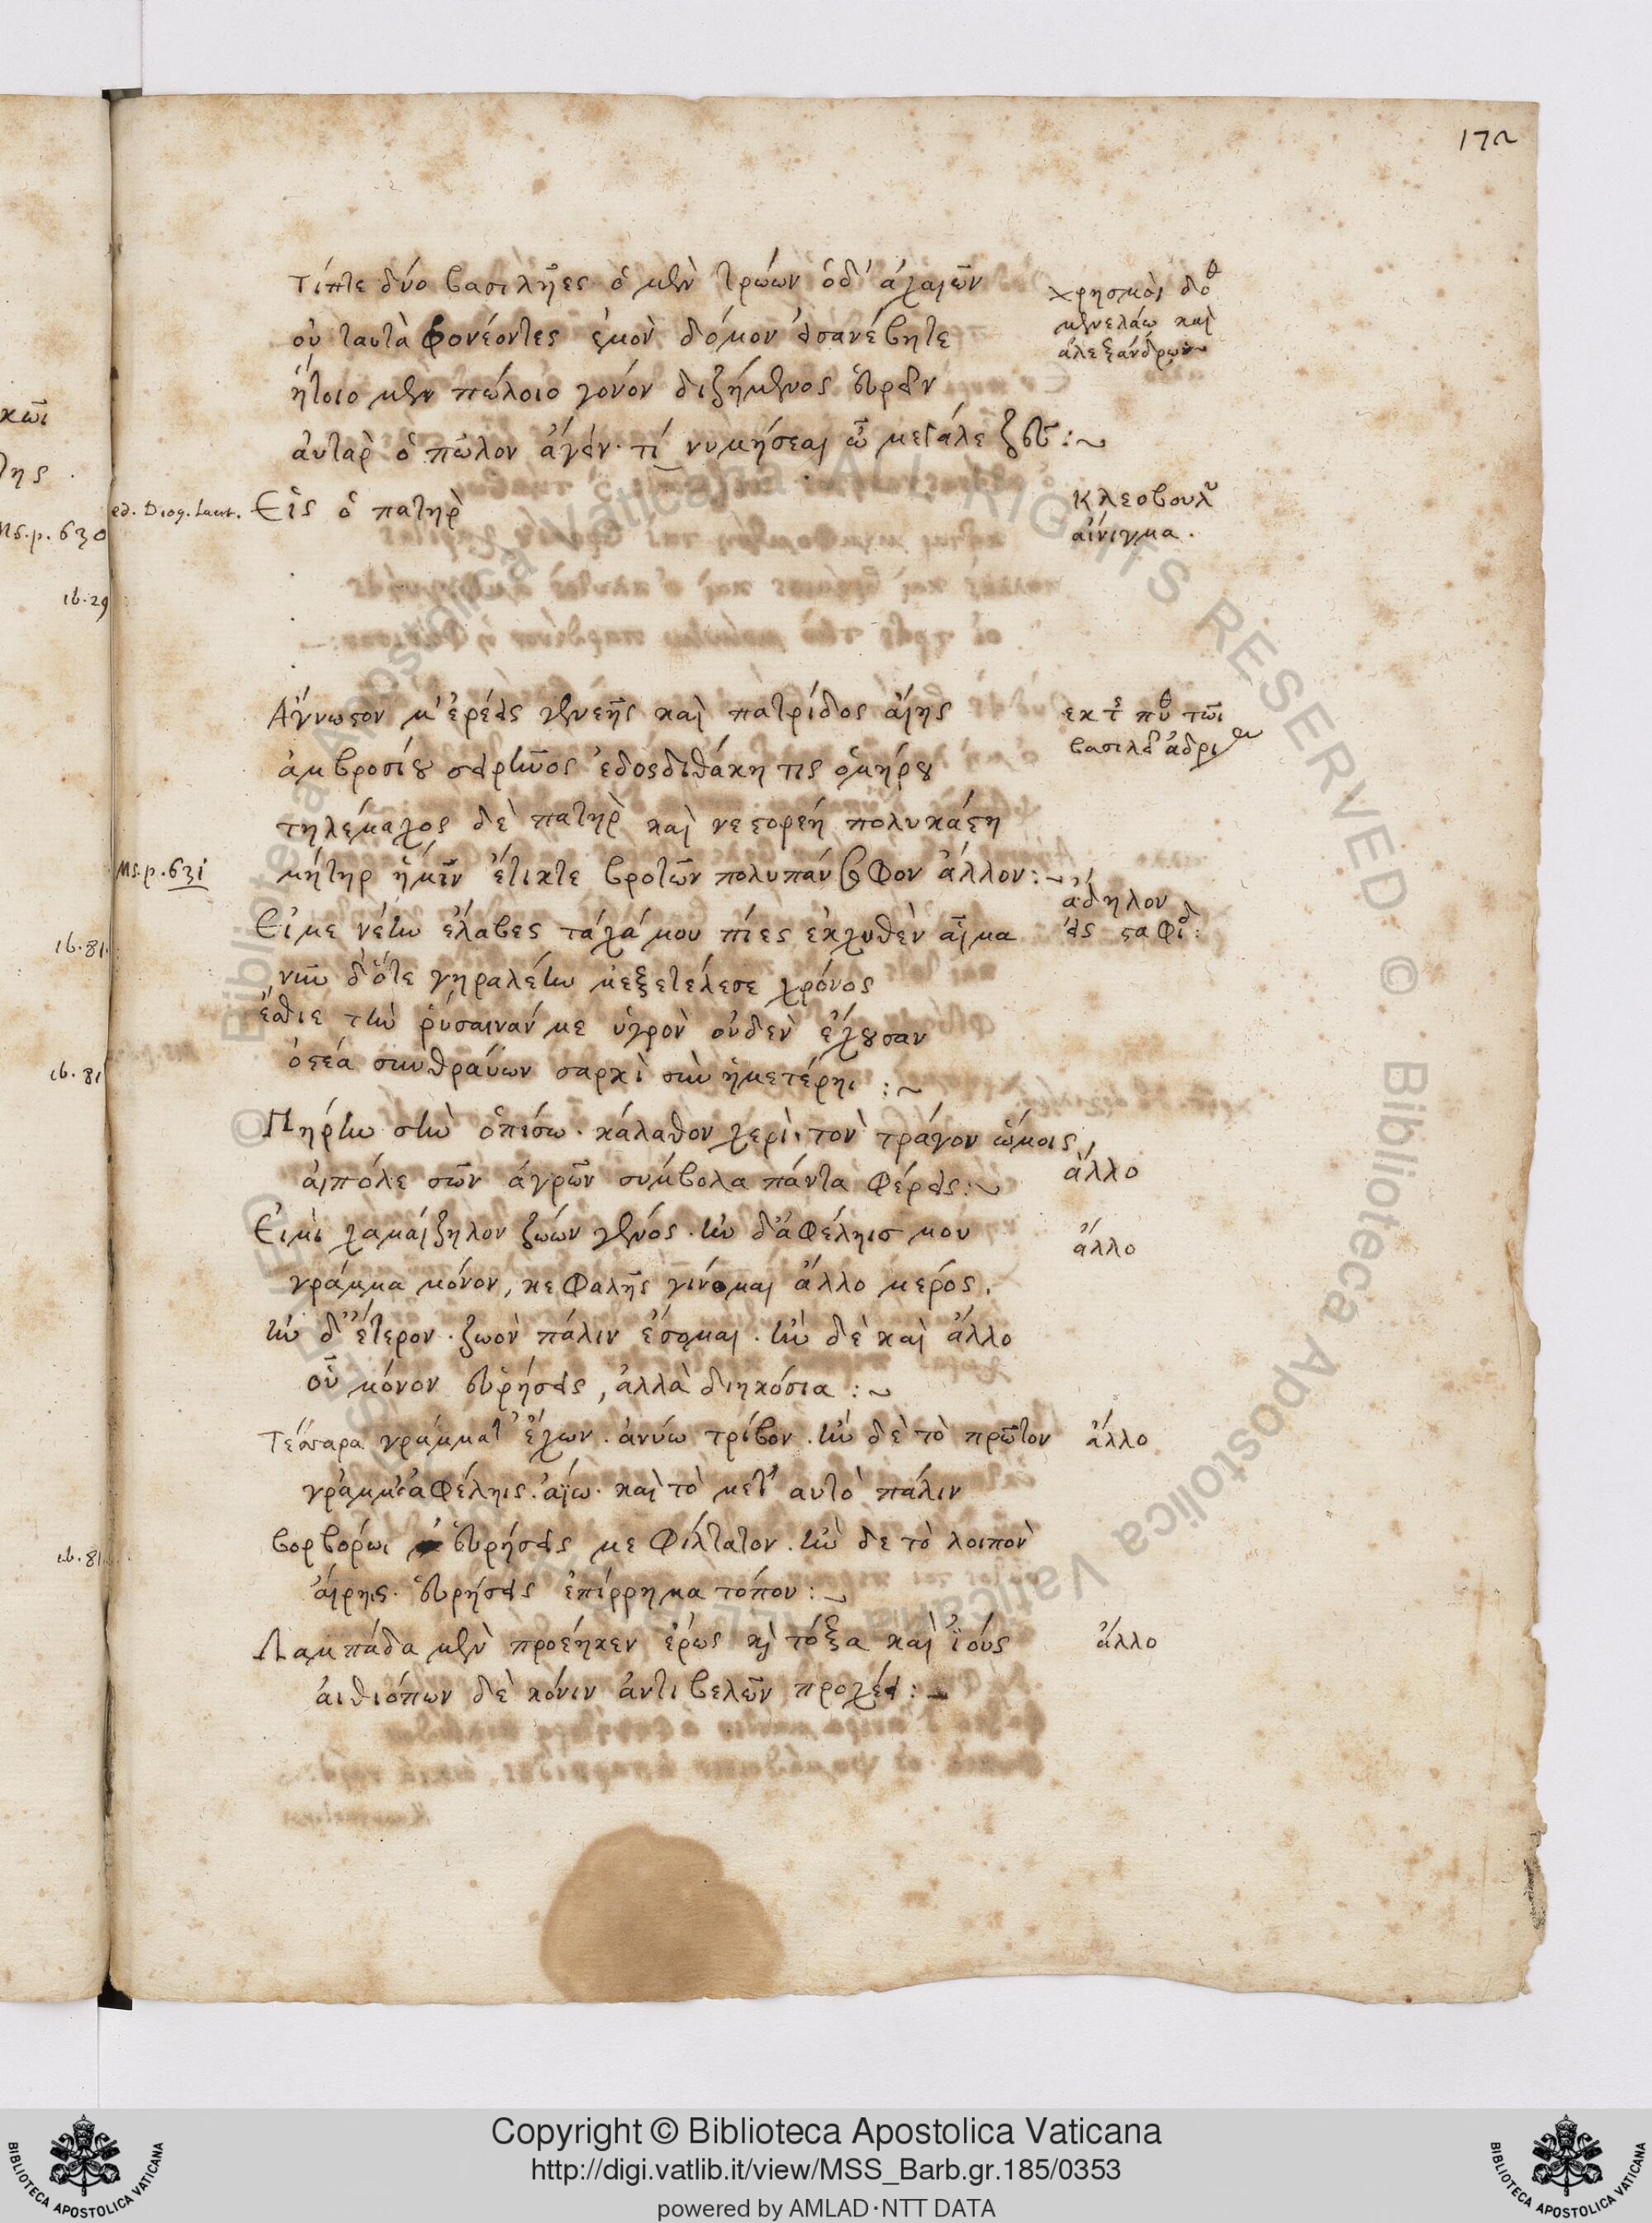 172
τίπτε δύο βασιλῆες ὁ μὲν τρώων ὁδ' ἀχαιῶν
οὐ ταυτὰ φρονέοντες ἐμὸν δόμον εἰσανέβητε
ἤτοιο μὲν πώλοιο γόνον διζήμενος εὑρεῖν
ἀυτὰρ ὁ πῶλον ἀγεῖν· τί νυ μήσεαι ὦ μεγάλε ζεῦ :~
χρησμὸς δοθ
μενελάω καὶ
ἀλεξάνδρω
ed. Diog. Laert. Εἷς ὁ πατὴρ
Κλεοβουλ
αἴνιγμα.
Ἄγνωστον μ' ἐρέεις γενεῆς καὶ πατρίδος αἴης
ἀμβροσίου σειρῆνος ἕδος δ' ἰθάκη τις ὁμήρου
τηλέμαχος δὲ πατὴρ καὶ νεστορέη πολυκάστη
Ms. p. 631 μήτηρ ἥ μιν ἔτικτε βροτῶν πολυπάνσοφον ἄλλον :~
εκ τ πυθ τῶι
βασιλεῖ ἀδρι
Εἴ με νέην ἔλαβες τάχά μου πίες ἐκχυθὲν αἷμα
νῦν δ' ὅτε γηραλέην μ' ἐξετέλεσε χρόνος
ἔσθιε τὴν ῥύσαιναν με ὑγρὸν οὐδὲν ἔχουσαν
ὀστέα συνθραύων σαρκὶ σὺν ἡμετέρηι :~
ἀδηλον
εἰς σταφι :
Πήρην σὴν ὀπίσω· κάλαθον χερὶ· τὸν τράγον ὤμοις,
αἰπόλε σῶν ἀγρῶν σύμβολα πάντα φέρεις :~
ἄλλο
Εἰμὶ χαμαίζηλον ζώων γένος· ἢν δ' ἀφέληισ μου
γράμμα μόνον, κεφαλῆς γίνομαι ἄλλο μερός.
ἢν δ' ἕτερον· ζωὸν πάλιν ἔσομαι· ἢν δὲ καὶ ἄλλο
οὗ μόνον εὑρήσεις, ἀλλὰ διηκόσια :~
ἄλλο
Τέσσαρα γράμματ' ἔχων· ἀνύω τρίβον· ἢν δὲ τὸ πρῶτον
γράμμ' ἀφέληις· ἀίω· καὶ τὸ μετ' αυτὸ πάλιν
βορβόρωι εὑρήσεις με φίλτατον· ἢν δε τὸ λοιπὸν
αἴρηις· εὑρήσεις ἐπίρρημα τόπου :~
ἄλλο
Λαμπάδα μὲν προέηκεν ἔρως κὶ τόξα καὶ ἰούς
αἰθιόπων δὲ κόνιν ἀντι βελῶν προχέει :~
ἄλλο
κῶι
της .
Ms. p. 630
ib. 29
ib. 81
ib. 81
ib. 81
Copyright © Biblioteca Apostolica Vaticana
http://digi.vatlib.it/view/MSS_Barb.gr.185/0353
powered by AMLAD·NTT DATA
BIBLIOTECA APOSTOLICA VATICANA
BIBLIOTECA APOSTOLICA VATICANA